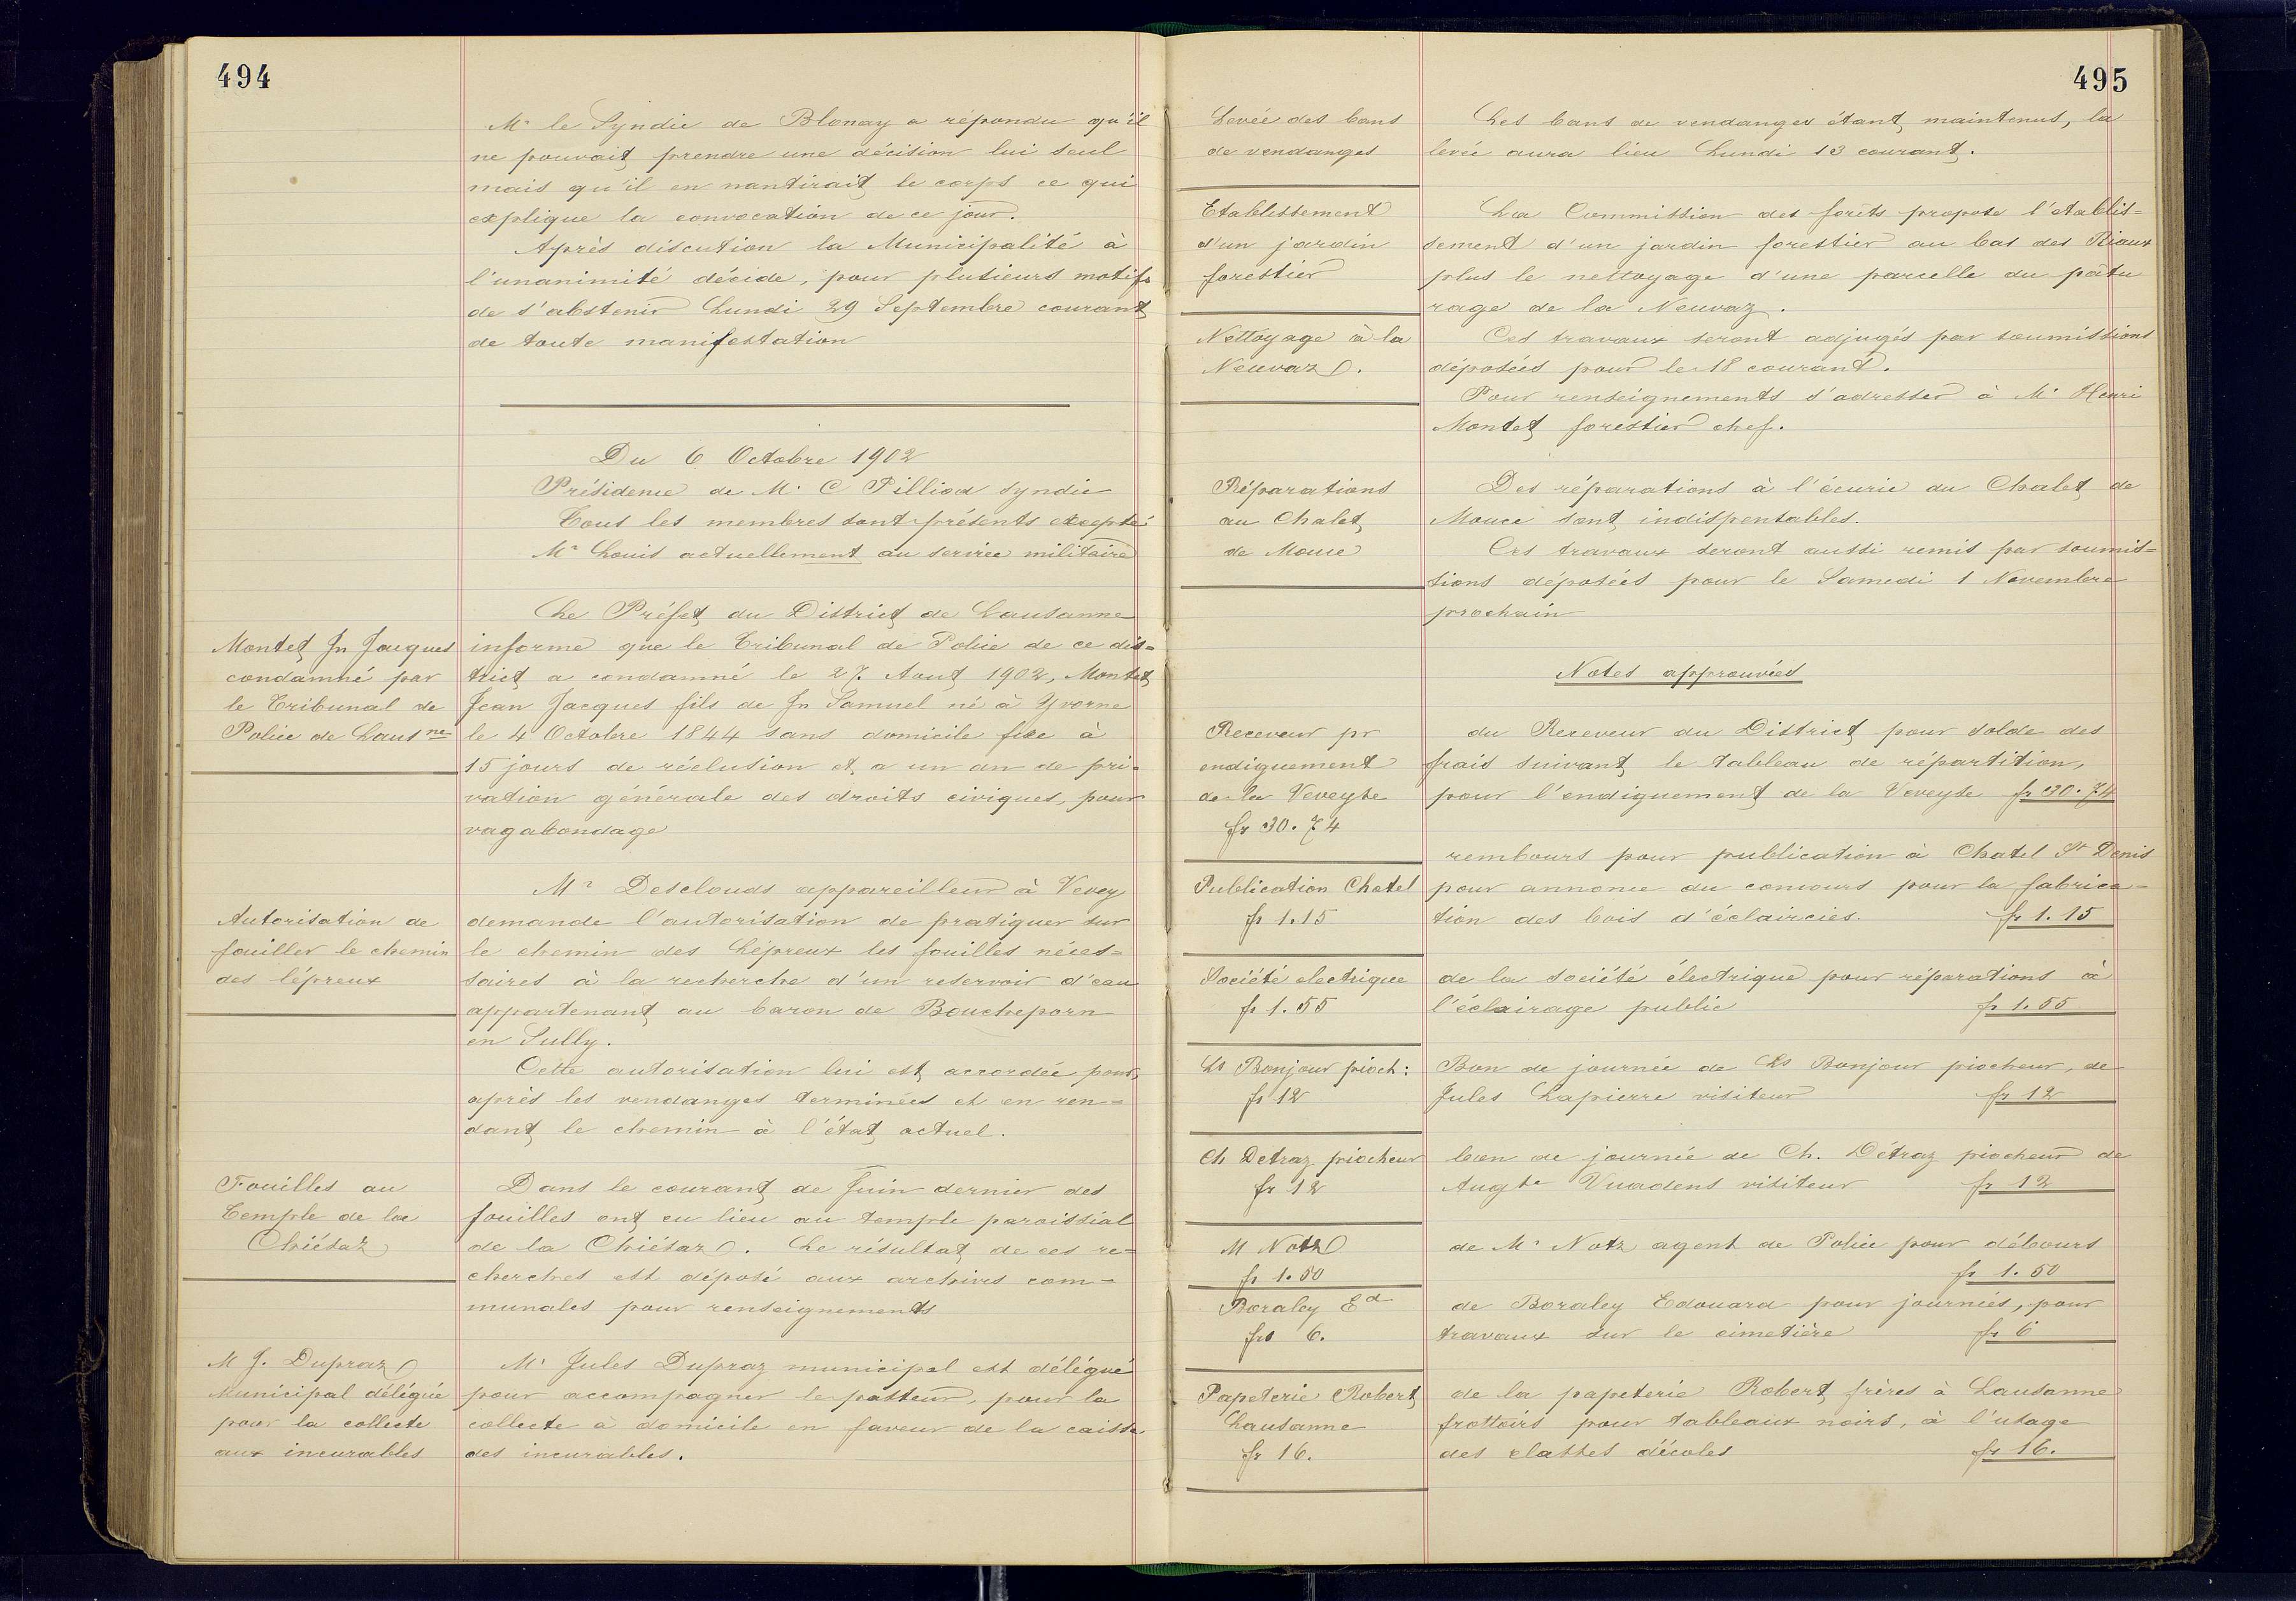 494
Mr le Syndic de Blonay a répondu qu'il
ne pouvait prendre une décision lui seul
mais qu'il en nantirait le corps ce qui
explique la convocation de ce jour.
Après discution la Municipalité à
l'unanimité décide, pour plusieurs motifs
de s'abstenir Lundi 29 Septembre courant
de toute manifestation
Du 6 Octobre 1902
Présidence de Mr C Pilliod syndic
Tous les membres sont présents excepté
Mr Louis actuellement au service militaire
Montet Jn Jacques
condamné par
le Tribunal de
Police de Lausne
Le Préfet du District de Lausanne
informe que le Tribunal de Police de ce dis=
trict a condamné le 27 Aout 1902, Montet
Jean Jacques fils de Jn Samuel né à Yvorne
le 4 Octobre 1844 sans domicile fixe à
15 jours de réclusion et a un an de pri=
vation générale des droits civiques, pour
vagabondage
Autorisation de
fouiller le chemin
des lépreux
Mr Desclouds appareilleur à Vevey
demande l'autorisation de pratiquer sur
le chemin des Lépreux les fouilles néces=
saires à la recherche d'un reservoir d'eau
appartenant au baron de Boucheporn
en Sully.
Cette autorisation lui est accordée pour,
après les vendanges terminées et en ren=
dant le chemin à l'état actuel.
Fouilles au
Temple de la
Chiésaz
Dans le courant de Juin dernier des
fouilles ont eu lieu au temple paroissial
de la Chiésaz. Le résultat de ces re=
cherches est déposé aux archives com=
munales pour renseignements
M J. Dupraz
Municipal délégué
pour la collecte
aux incurables
Mr Jules Dupraz municipal est délégué
pour accompagner le pasteur, pour la
collecte à domicile en faveur de la caisse
des incurables.
495
Levée des bans
de vendanges
Les bans de vendanges étant maintenus, la
levée aura lieu Lundi 13 courant.
Etablissement
d'un jardin
forestier
La Commission des forêts propose l'établis=
sement d'un jardin forestier au bas des Riaux
plus le nettoyage d'une parcelle du pâtu
rage de la Neuvaz.
Nettoyage à la
Neuvaz.
Ces travaux seront adjugés par soumissions
déposées pour le 18 courant.
Pour renseignements s'adresser à Mr Henri
Montet forestier chef.
Réparations
au Chalet
de Mouce
Des réparations à l'écurie du Chalet de
Mouce sont indispensables.
Ces travaux seront aussi remis par soumis=
sions déposées pour le Samedi 1 Novembre
prochain
Notes approuvées
Receveur pr
endiguement
de la Veveyse
fr 30.74
du Receveur du District pour solde des
frais suivant le tableau de répartition,
pour l'endiguement de la Veveyse fr 30.74
Publication Chatel
fr 1.15
rembours pour publication à Chatel St Denis
pour annonce du concours pour la fabrica=
tion des bois d'éclaircies. fr 1.15
Société electrique
fr 1.55
de la société électrique pour réparations à
l'éclairage public fr 1.55
Ls Bonjour pioch:
fr 12
Bon de journée de Ls Bonjour piocheur, de
Jules Lapierre visiteur fr 12
Ch Detraz piocheur
fr 12
bon de journée de Ch. Détraz piocheur de
Augte Vuadens visiteur fr 12
M Notz
fr 1.50
de Mr Notz agent de Police pour débours
fr 1.50
Boraley Ed
frs 6.
de Boraley Edouard pour journées, pour
travaux sur le cimetière fr 6
Papeterie Robert
Lausanne
fr 16.
de la papeterie Robert frères à Lausanne
frottoirs pour tableaux noirs, à l'usage
des classes d'écoles fr 16.